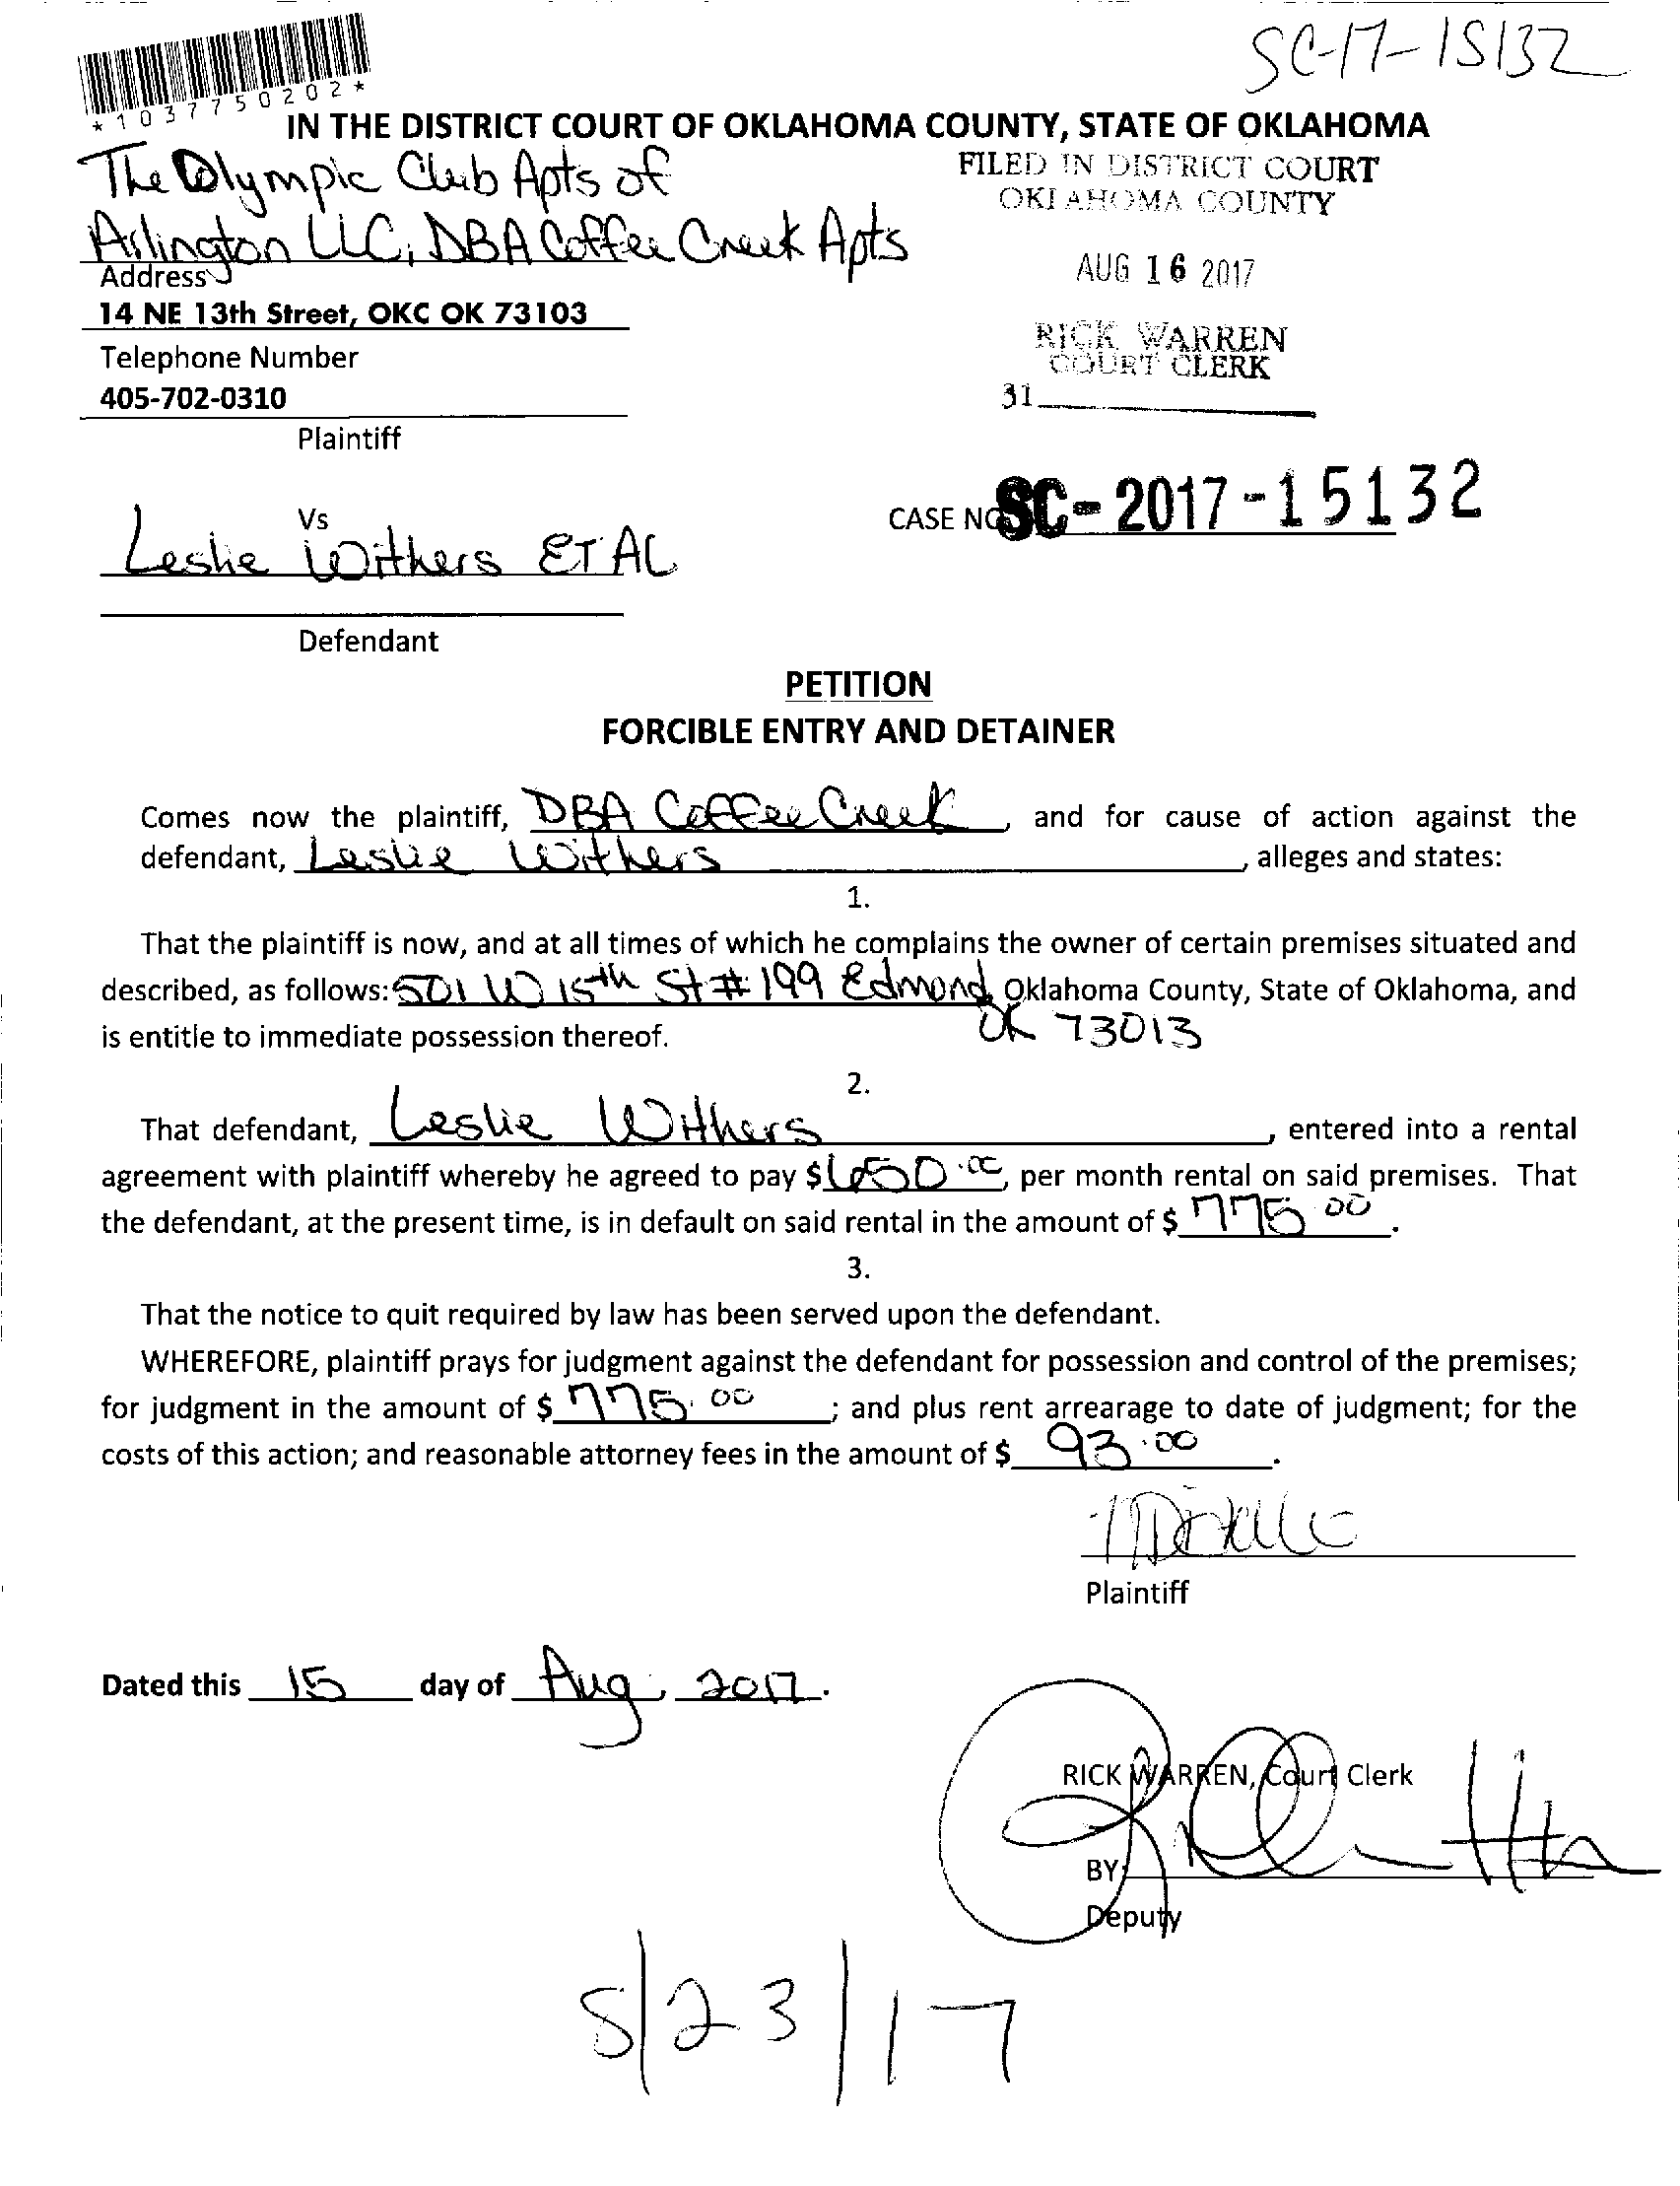 SC-17-15132
*1037750202*
IN THE DISTRICT COURT OF OKLAHOMA COUNTY, STATE OF OKLAHOMA
The Olympic Club Apts of
Arlington LLC, DBA Coffee Creek Apts
FILED IN DISTRICT COURT
OKLAHOMA COUNTY
AUG 16 2017
RICK WARREN
COURT CLERK
31
Address
14 NE 13th Street, OKC OK 73103
Telephone Number
405-702-0310
Plaintiff
Vs
CASE NO SC-2017-15132
Leslie Withers ET AL
Defendant
PETITION
FORCIBLE ENTRY AND DETAINER
Comes now the plaintiff, DBA Coffee Creek, and for cause of action against the
defendant, Leslie Withers, alleges and states:
1.
That the plaintiff is now, and at all times of which he complains the owner of certain premises situated and
described, as follows: 501 W 15th St #199 Edmond, Oklahoma County, State of Oklahoma, and
OK 73013
is entitle to immediate possession thereof.
2.
That defendant, Leslie Withers, entered into a rental
agreement with plaintiff whereby he agreed to pay $650.00, per month rental on said premises. That
the defendant, at the present time, is in default on said rental in the amount of $775.00.
3.
That the notice to quit required by law has been served upon the defendant.
WHEREFORE, plaintiff prays for judgment against the defendant for possession and control of the premises;
for judgment in the amount of $775.00; and plus rent arrearage to date of judgment; for the
costs of this action; and reasonable attorney fees in the amount of $93.00.
Plaintiff
Dated this 15 day of Aug, 2017.
RICK WARREN, Court Clerk
BY:
Deputy
8/23/17